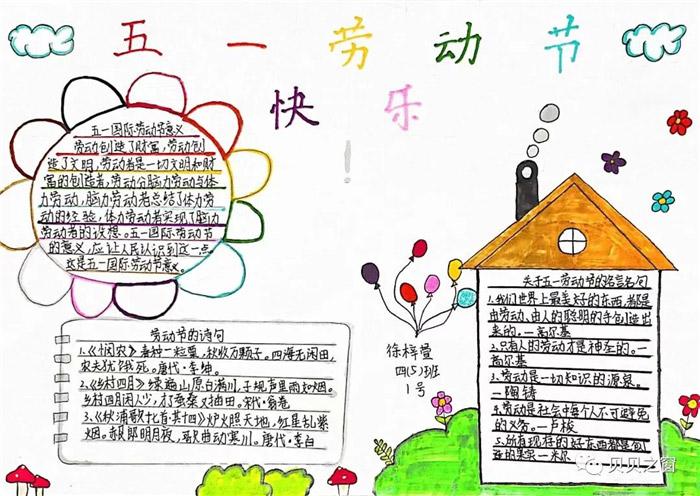 五一劳动节
快乐
!
五一国际劳动节意义
劳动创造了财富,劳动创
造了文明,劳动者是一切文明和财
富的创造者,劳动分脑力劳动与体
力劳动,脑力劳动者总结了体力劳
动的经验,体力劳动者实现了脑力
劳动者的设想。五一国际劳动节
的意义,应让人民认识到这一点
这是五一国际劳动节意义。
劳动节的诗句
1.《悯农》春种一粒粟,秋收万颗子。四海无闲田,
农夫犹饿死。唐代·李绅。
2.《乡村四月》绿遍山原白满川,子规声里雨如烟。
乡村四月闲人少,才了蚕桑又插田。宋代·翁卷
3.《秋浦歌十七首其十四》炉火照天地,红星乱紫
烟。赧郎明月夜,歌曲动寒川。唐代·李白
徐梓萱
四(5)班
1号
关于五一劳动节的名言名句
1.我们世界上最美好的东西,都是
由劳动、由人的聪明的手创造出
来的。—高尔基
2.只有人的劳动才是神圣的。—
高尔基
3.劳动是一切知识的源泉。
—陶铸
4.劳动是社会中每个人不可避免
的义务。—卢梭
5.所有现存的好东西都是创
造的果实—米尔
贝贝之窗